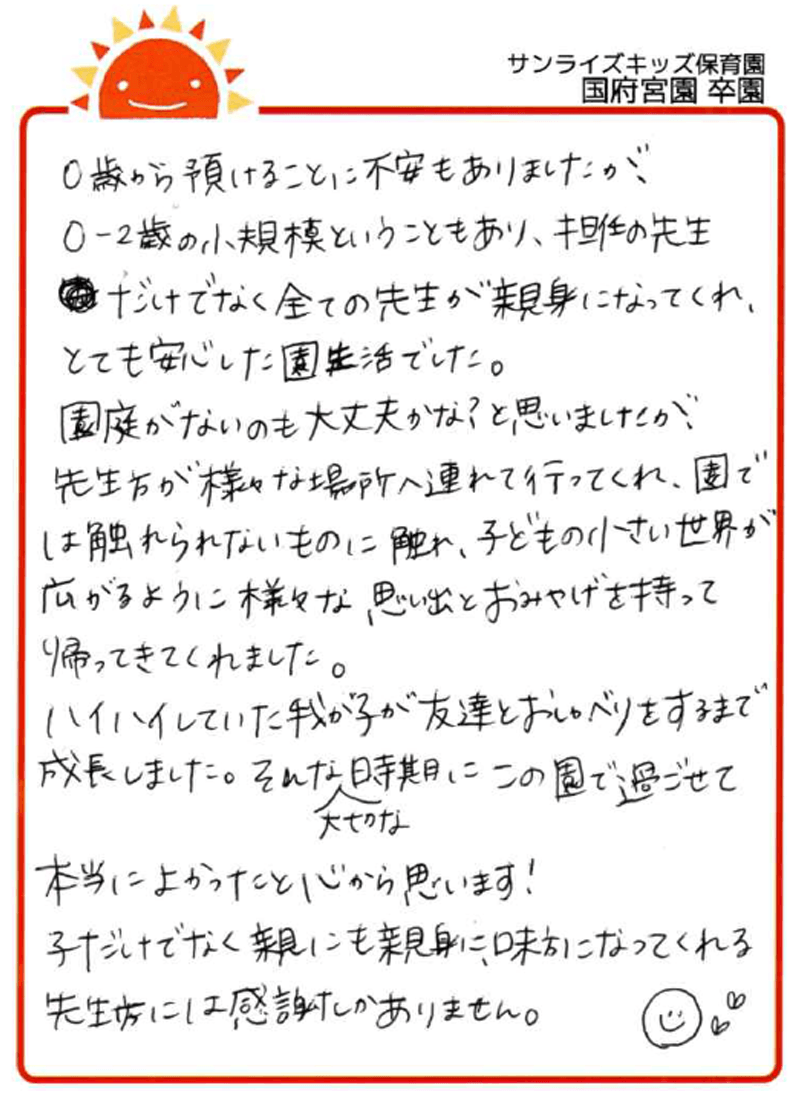 サンライズキッズ保育園
国府宮園 卒園
0歳から預けることに不安もありましたが、
0-2歳の小規模ということもあり、担任の先生
だけでなく全ての先生が親身になってくれ、
とても安心した園生活でした。
園庭がないのも大丈夫かな?と思いましたが、
先生方が様々な場所へ連れて行ってくれ、園で
は触れられないものに触れ、子どもの小さい世界が
広がるように様々な思い出とおみやげを持って
帰ってきてくれました。
ハイハイしていた我が子が友達とおしゃべりをするまで
成長しました。そんな時期にこの園で過ごせて
大切な
本当によかったたと心から思います!
子だけでなく親にも親身に、味方になってくれる
先生方には感謝しかありません。